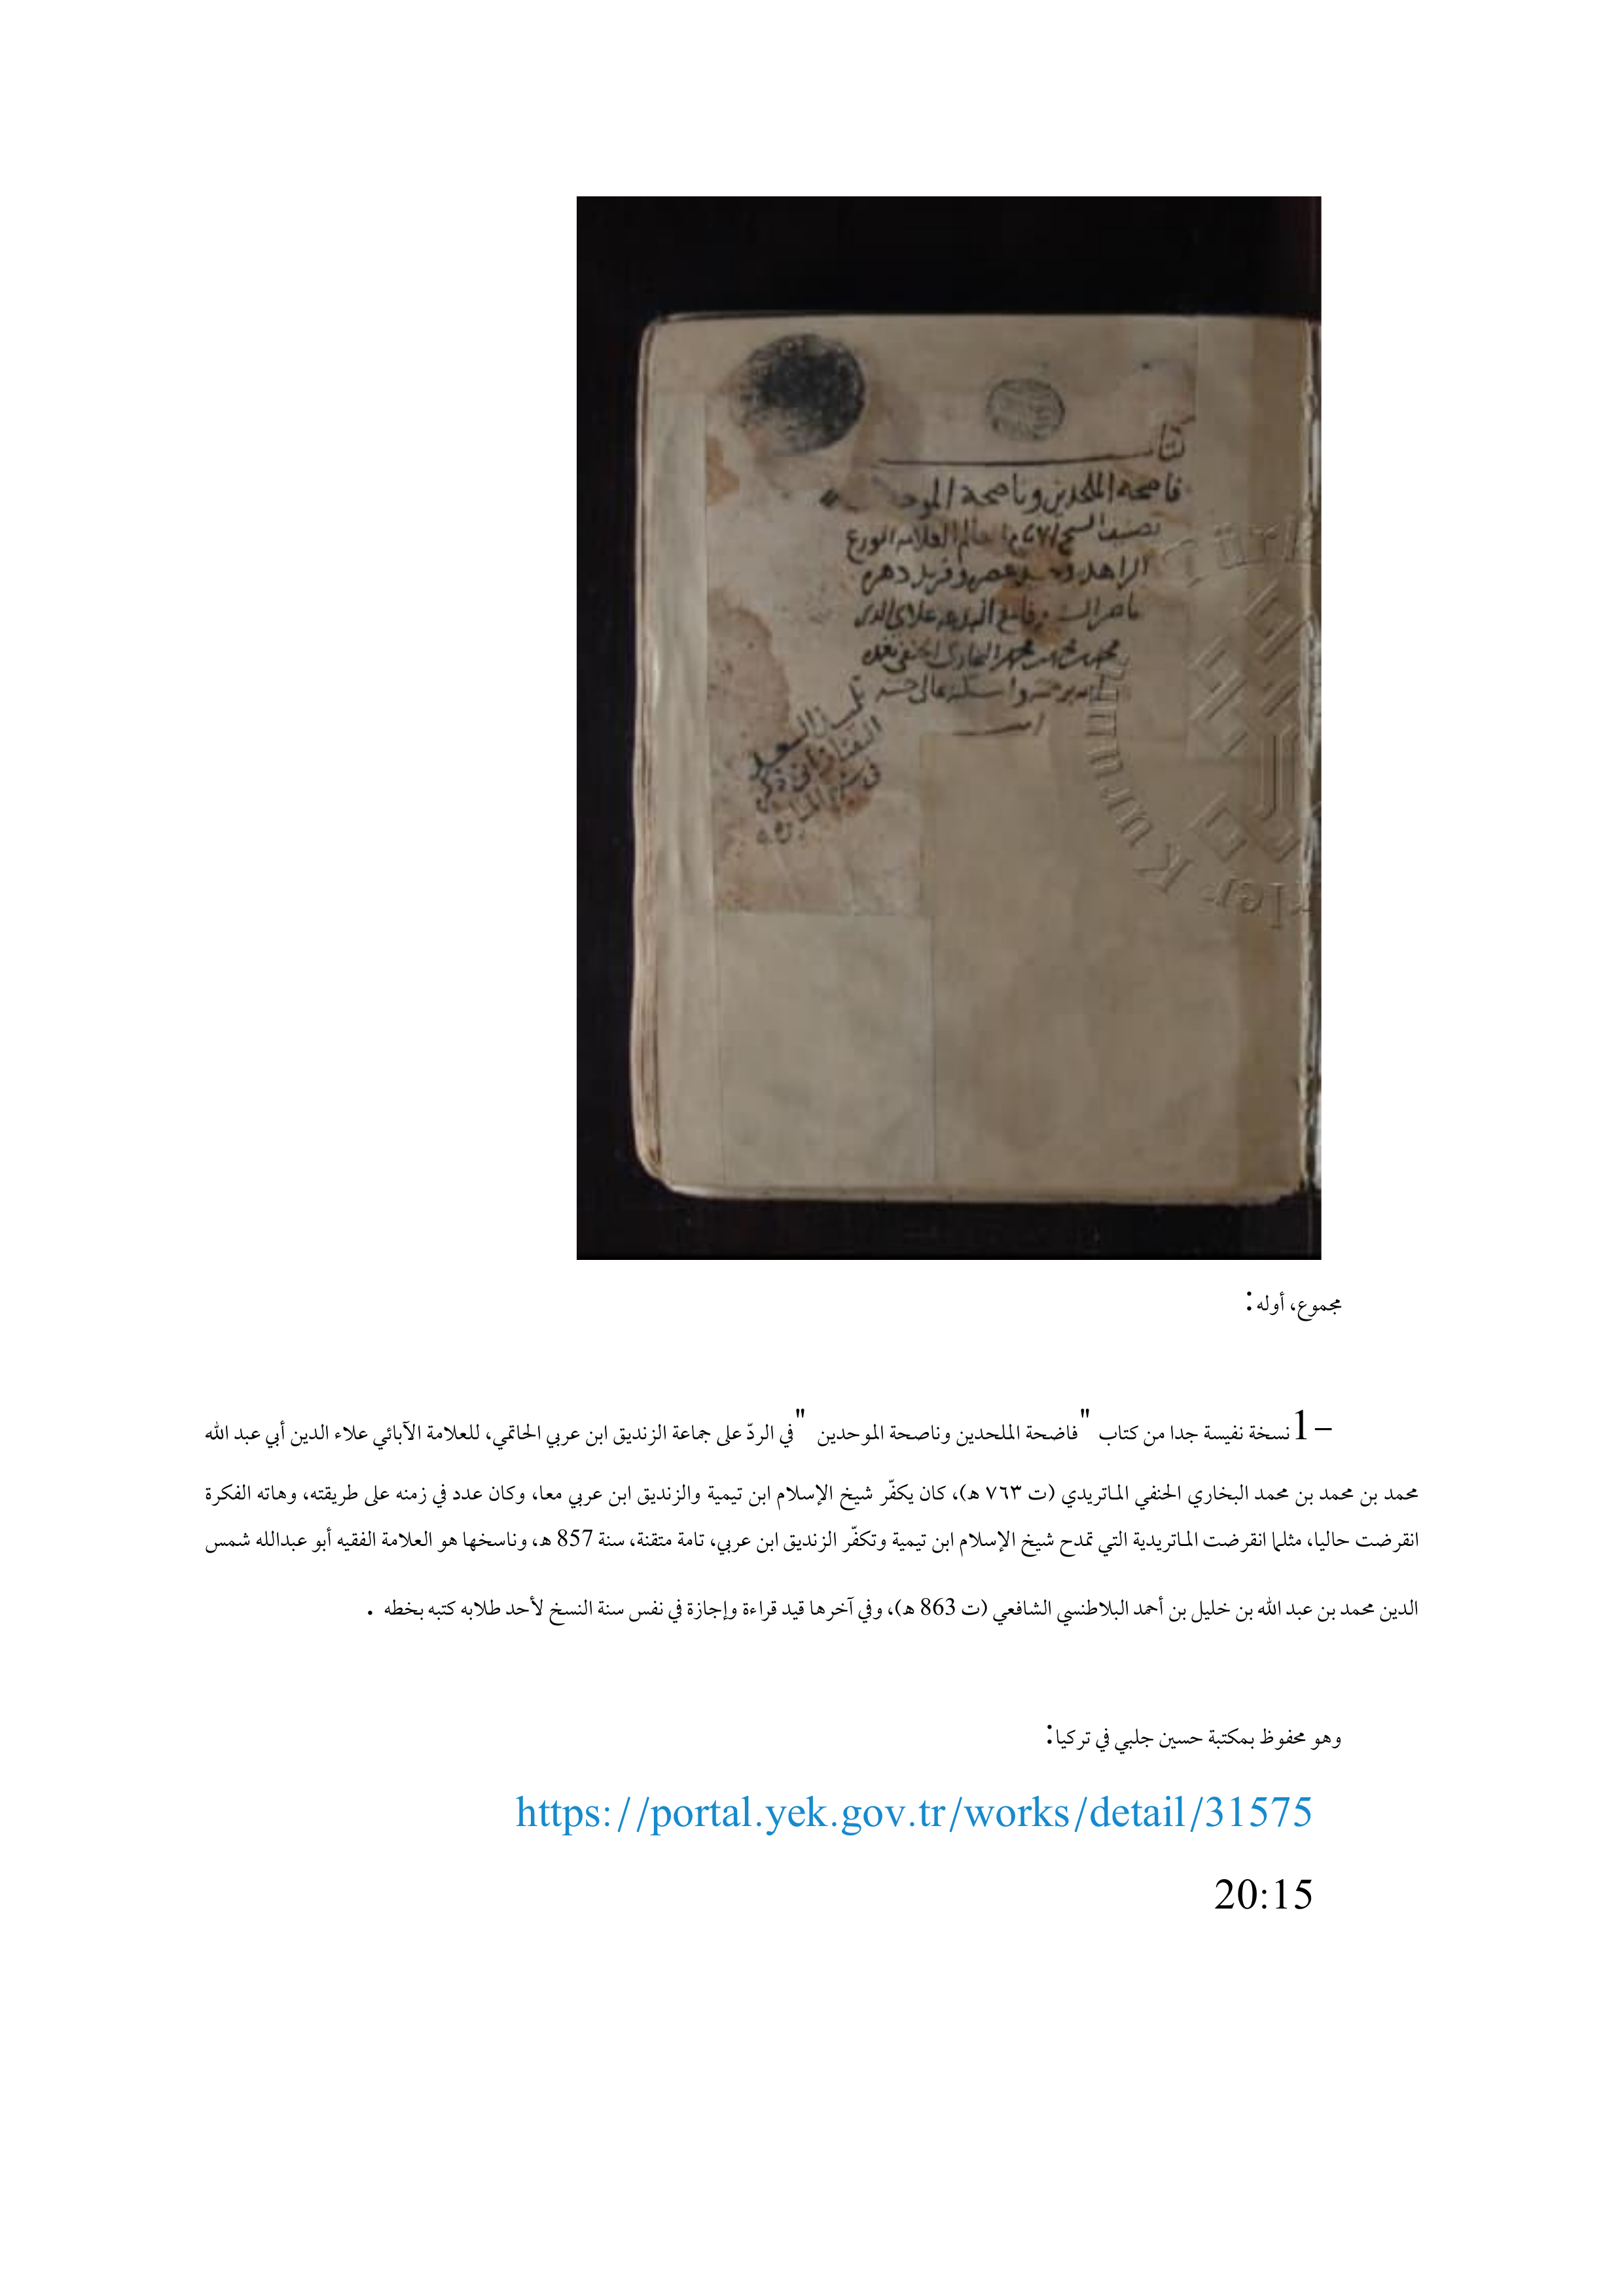 كتاب
فاضحة الملحدين وناصحة
تصنيف الشيخ العلامه الورع
الزاهد عصره وفريد دهره
علاء الدين
محمد بن محمد بن محمد البخارى الحنفى
تلميذ السعد
التفتازانى
مجموع، أوله:
1– نسخة نفيسة جدا من كتاب "فاضحة الملحدين وناصحة الموحدين" في الردّ على جماعة الزنديق ابن عربي الحاتمي، للعلامة الآبائي علاء الدين أبي عبد الله
محمد بن محمد بن محمد البخاري الحنفي الماتريدي (ت ٧٦٣ هـ)، كان يكفّر شيخ الإسلام ابن تيمية والزنديق ابن عربي معا، وكان عدد في زمنه على طريقته، وهاته الفكرة
انقرضت حاليا، مثلما انقرضت الماتريدية التي تمدح شيخ الإسلام ابن تيمية وتكفّر الزنديق ابن عربي، تامة متقنة، سنة 857 هـ، وناسخها هو العلامة الفقيه أبو عبدالله شمس
الدين محمد بن عبد الله بن خليل بن أحمد البلاطنسي الشافعي (ت 863 هـ)، وفي آخرها قيد قراءة وإجازة في نفس سنة النسخ لأحد طلابه كتبه بخطه .
وهو محفوظ بمكتبة حسين جلبي في تركيا:
https://portal.yek.gov.tr/works/detail/31575
20:15